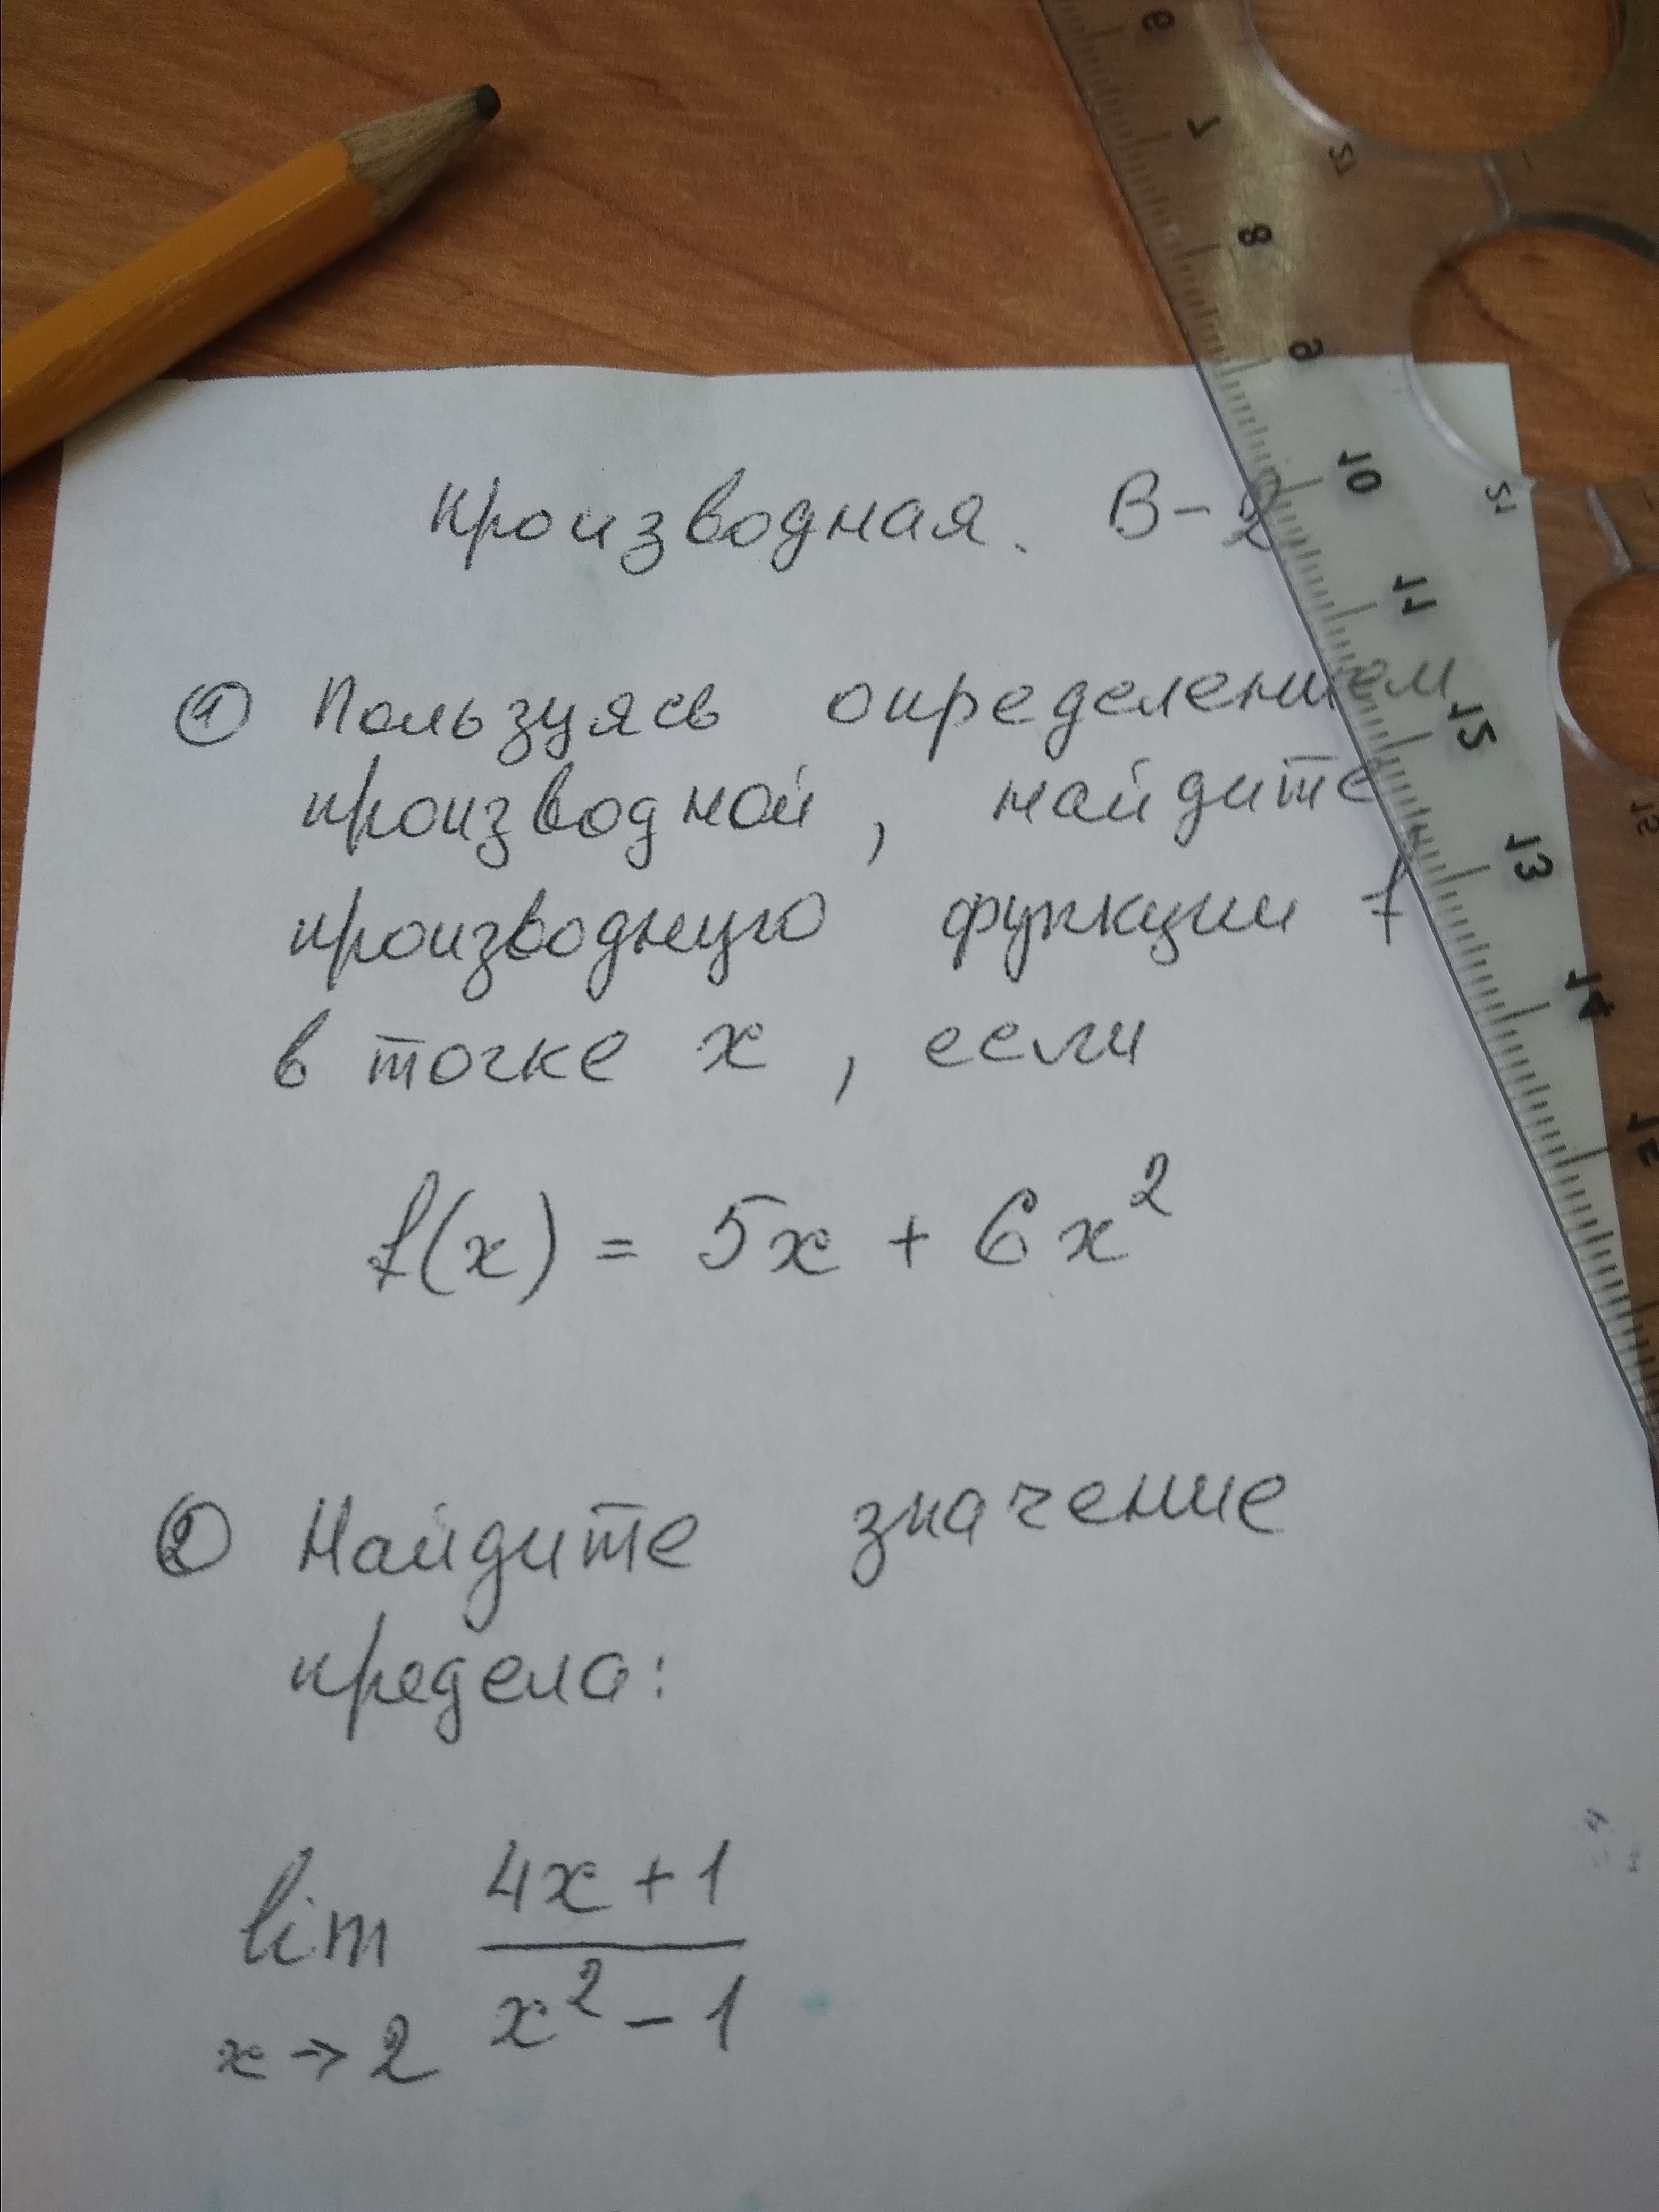 Производная. В-2
① Пользуясь определением
производной, найдите
производную функции f
в точке x, если
f(x) = 5x + 6x²
② Найдите значение
предела:
lim 4x+1
x→2 x²-1
6
7
8
9
10
11
12
13
14
15